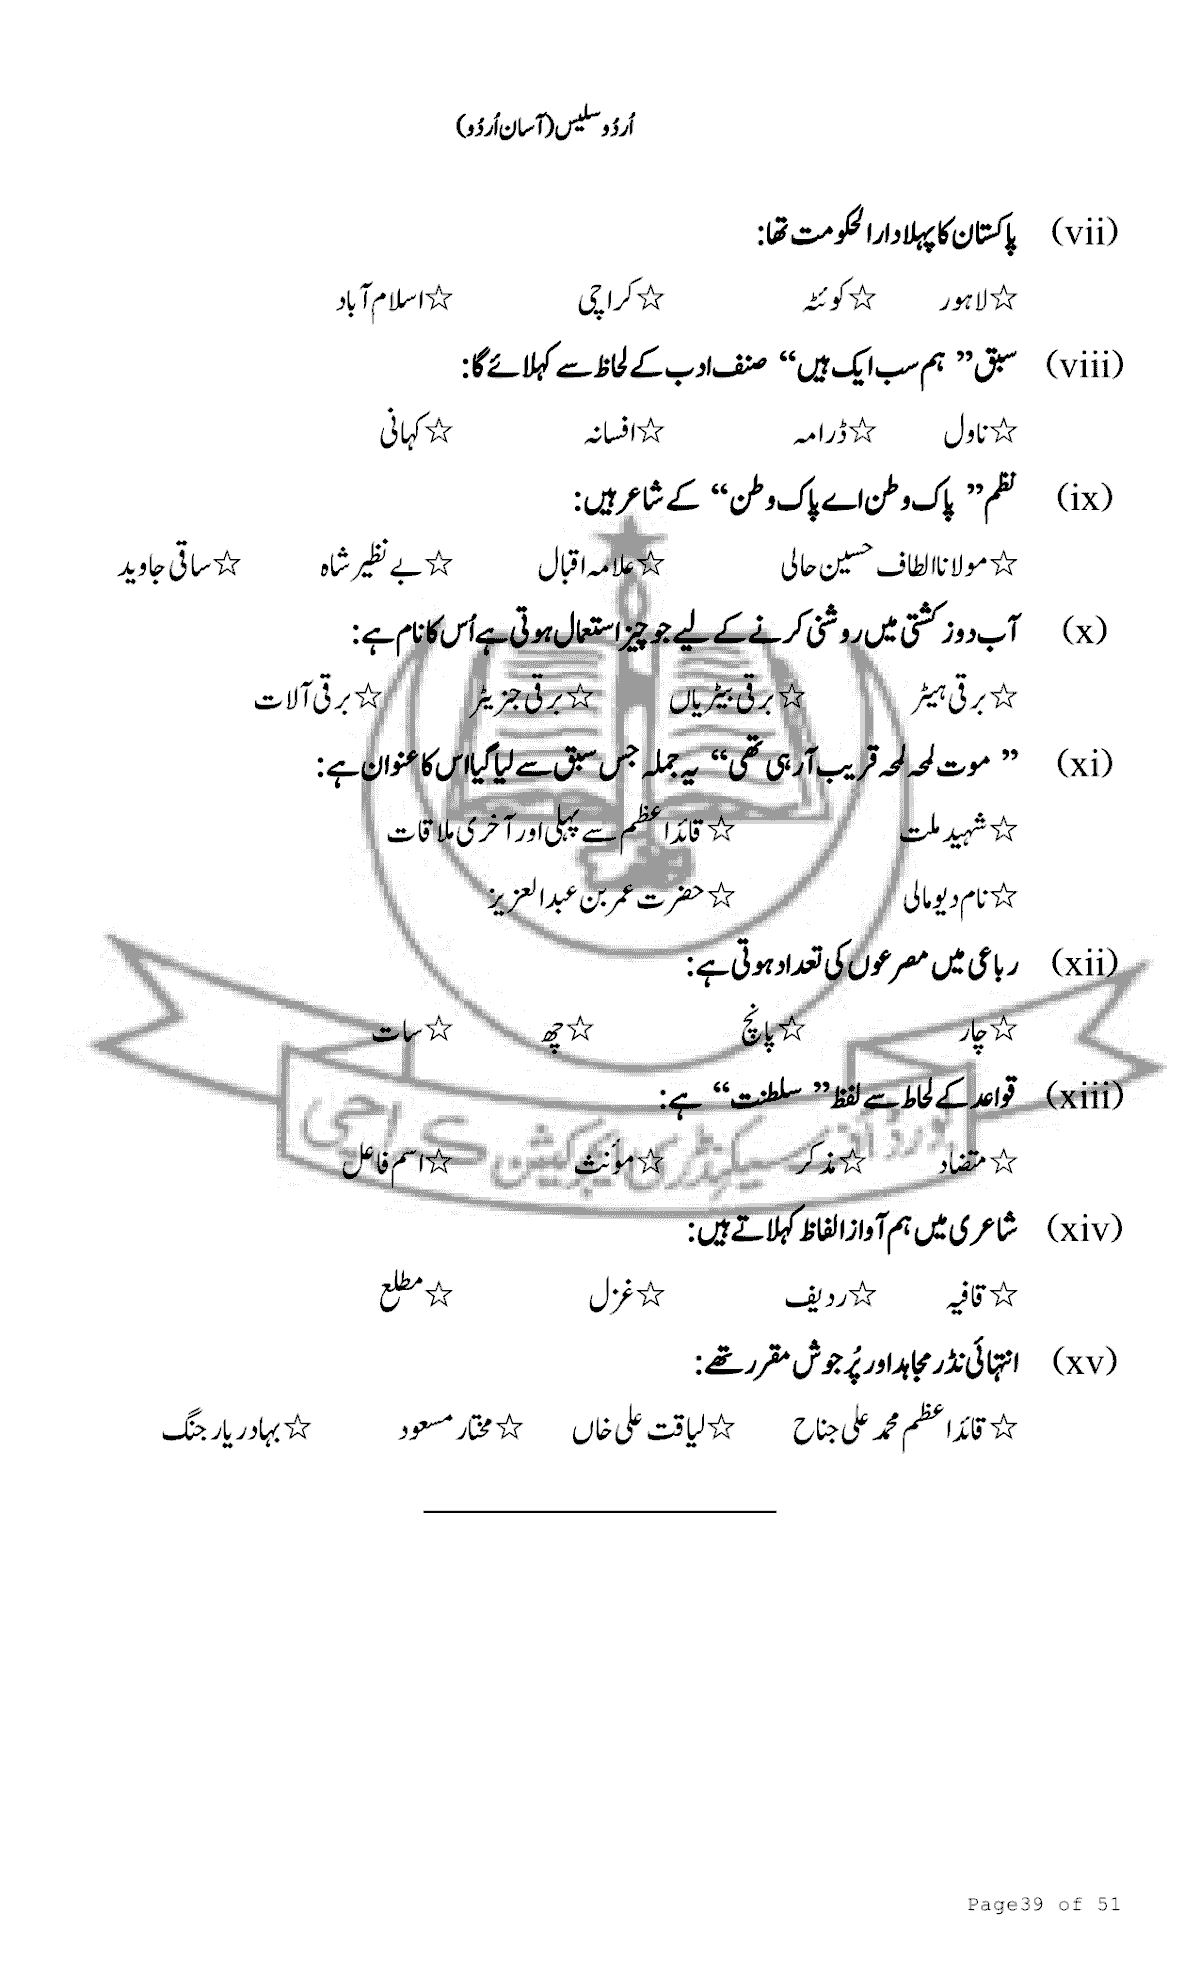 اُردُو سلیس (آسان اُردُو)
(vii) پاکستان کا پہلا دارالحکومت تھا:
☆ لاہور ☆ کوئٹہ ☆ کراچی ☆ اسلام آباد
(viii) سبق ”ہم سب ایک ہیں“ صنف ادب کے لحاظ سے کہلائے گا:
☆ ناول ☆ ڈرامہ ☆ افسانہ ☆ کہانی
(ix) نظم ”پاک وطن اے پاک وطن“ کے شاعر ہیں:
☆ مولانا الطاف حسین حالی ☆ علامہ اقبال ☆ بے نظیر شاہ ☆ ساقی جاوید
(x) آب دوز کشتی میں روشنی کرنے کے لیے جو چیز استعمال ہوتی ہے اُس کا نام ہے:
☆ برقی ہیٹر ☆ برقی بیٹریاں ☆ برقی جنریٹر ☆ برقی آلات
(xi) ”موت لمحہ لمحہ قریب آ رہی تھی“ یہ جملہ جس سبق سے لیا گیا اس کا عنوان ہے:
☆ شہید ملت ☆ قائد اعظم سے پہلی اور آخری ملاقات
☆ نام دیو مالی ☆ حضرت عمر بن عبدالعزیز
(xii) رباعی میں مصرعوں کی تعداد ہوتی ہے:
☆ چار ☆ پانچ ☆ چھ ☆ سات
(xiii) قواعد کے لحاط سے لفظ ”سلطنت“ ہے:
☆ متضاد ☆ مذکر ☆ مؤنث ☆ اسم فاعل
بورڈ آف سیکنڈری ایجوکیشن کراچی
(xiv) شاعری میں ہم آواز الفاظ کہلاتے ہیں:
☆ قافیہ ☆ ردیف ☆ غزل ☆ مطلع
(xv) انتہائی نڈر مجاہد اور پُر جوش مقرر تھے:
☆ قائد اعظم محمد علی جناح ☆ لیاقت علی خاں ☆ مختار مسعود ☆ بہادر یار جنگ
Page39 of 51